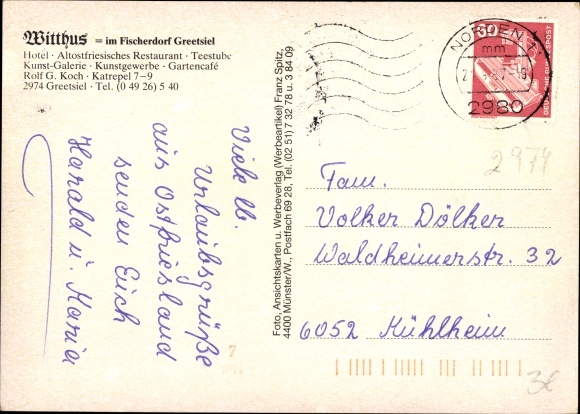 Witthus = im Fischerdorf Greetsiel
Hotel · Altostfriesisches Restaurant · Teestube
Kunst-Galerie · Kunstgewerbe · Gartencafé
Rolf G. Koch · Katrepel 7–9
2974 Greetsiel · Tel. (0 49 26) 5 40
Viele lb.
Urlaubsgrüße
aus Ostfriesland
senden Euch
Harald u. Maria
Foto, Ansichtskarten u. Werbeverlag (Werbeartikel) Franz Spitz,
4400 Münster/W., Postfach 69 28, Tel. (02 51) 7 32 78 u. 3 84 09
NORDEN 1
mm
2980
60
DEUTSCHE BUNDESPOST
2974
Fam.
Volker Dölker
Waldheimerstr. 32
6052 Mühlheim
7
3€